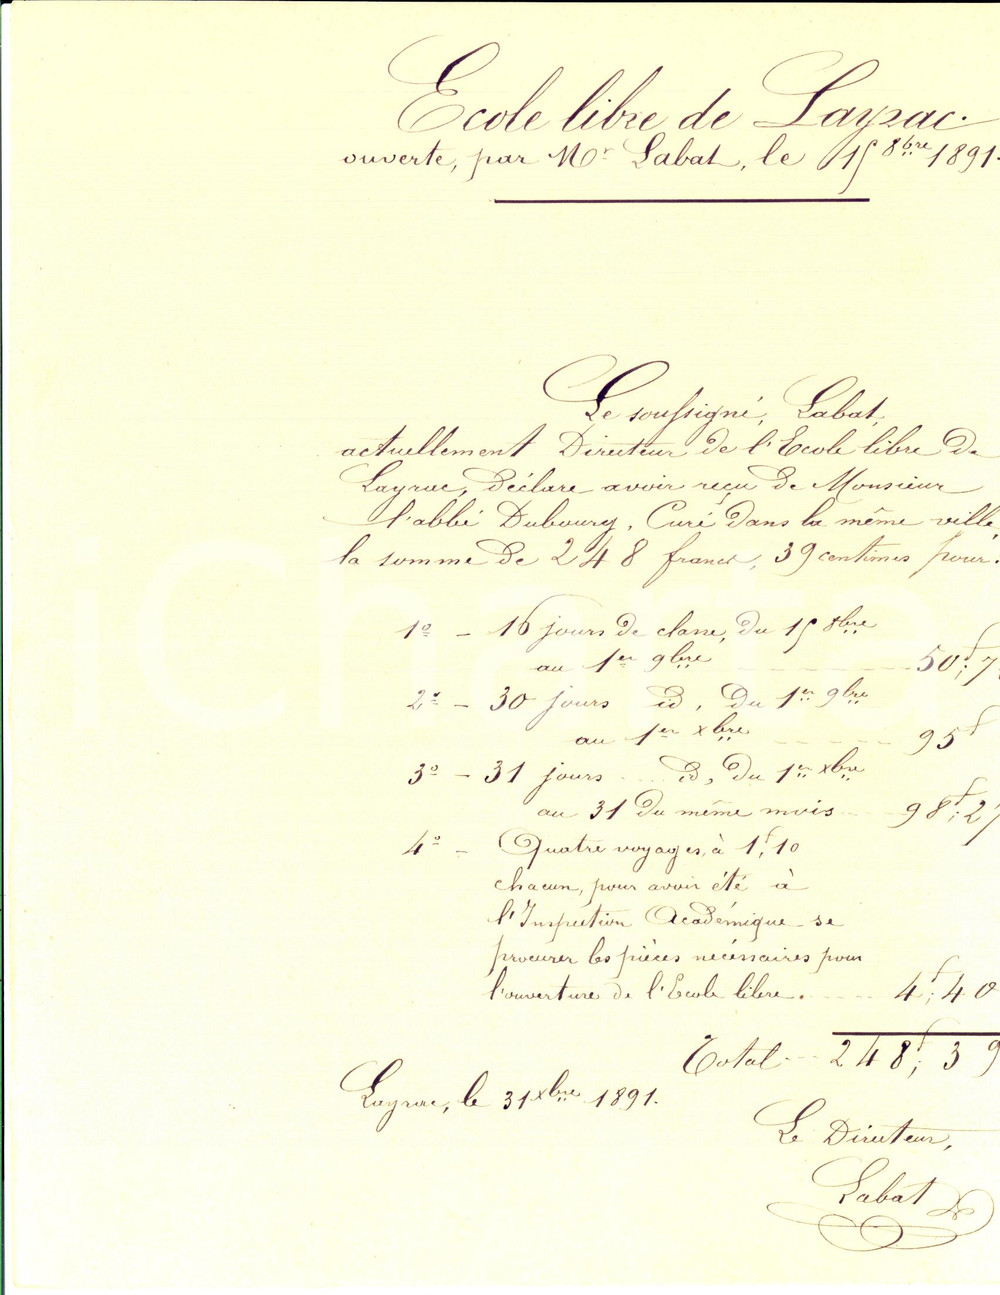 Ecole libre de Layrac.
ouverte, par Mr Labat, le 15 8bre 1891.
Le soussigné, Labat,
actuellement Directeur de l'Ecole libre de
Layrac, déclare avoir reçu de Monsieur
l'abbé Dubourg, Curé dans la même ville,
la somme de 248 francs, 39 centimes pour:
1o - 16 jours de classe, du 15 8bre
au 1er 9bre 50f,7
2o - 30 jours id, du 1er 9bre
au 1er xbre 95f
3o - 31 jours id, du 1er xbre
au 31 du même mois 98f,27
4o - Quatre voyages, à 1f,10
chacun, pour avoir été à
l'Inspection Académique se
procurer les pièces nécessaires pour
l'ouverture de l'Ecole libre. 4f,40
Total 248f,39
Layrac, le 31 xbre 1891.
Le Directeur,
Labat
iCharta